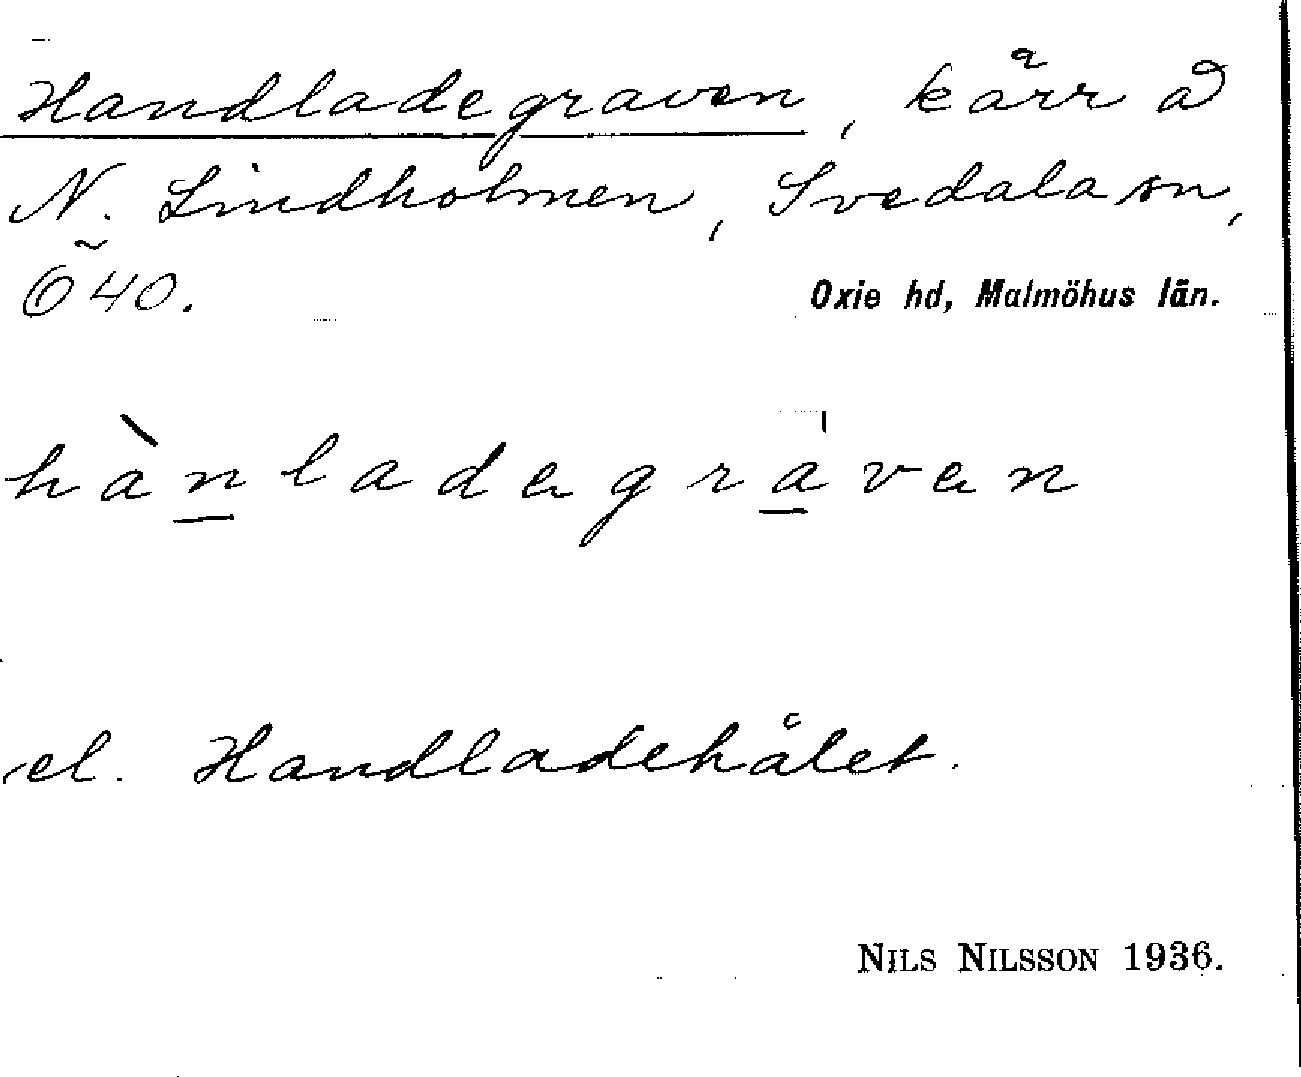 Handladegraven, kärr å
N. Lindholmen, Svedala sn,
Ö 40.
Oxie hd, Malmöhus län.
hànladegraven
el. Handladehålet.
NILS NILSSON 1936.